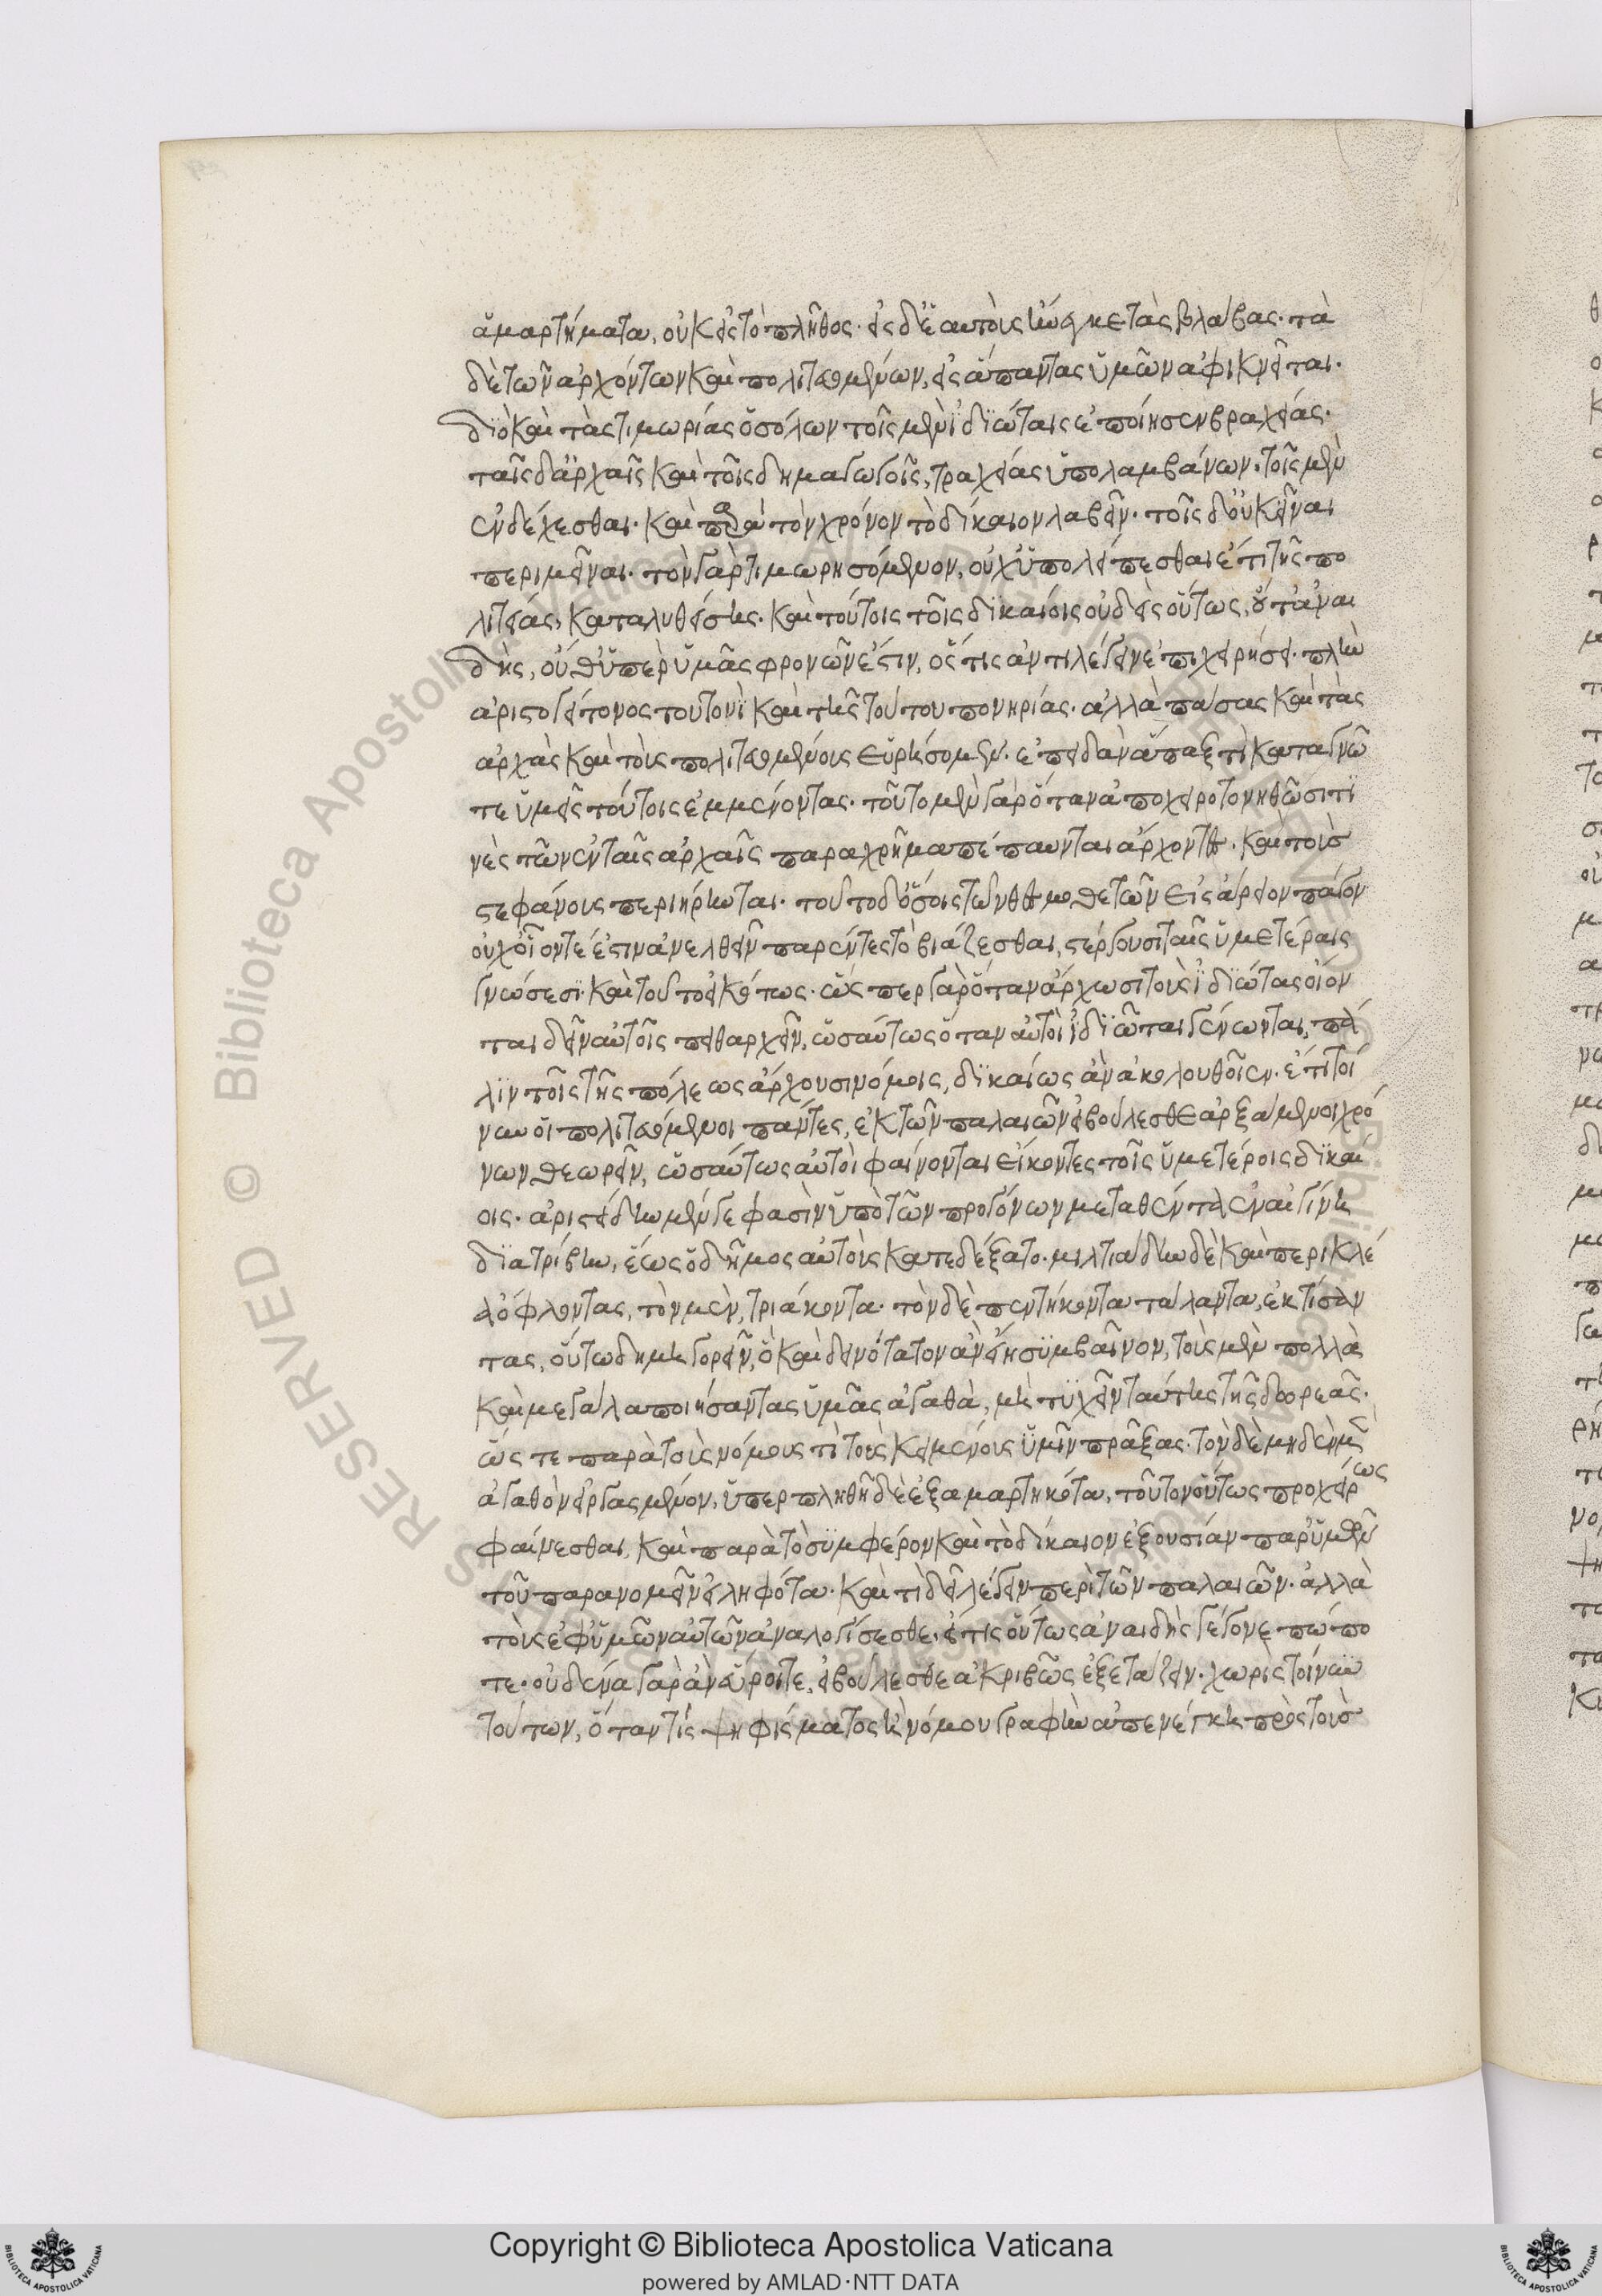 ἁμαρτήματα, οὐκ εἰς τὸ πλῆθος· εἰς δὲ αὑτοὺς ἤνεγκε τὰς βλάβας· τὰ
δὲ τῶν ἀρχόντων καὶ πολιτευομένων, εἰς ἅπαντας ὑμῶν ἀφικνεῖται·
διὸ καὶ τὰς τιμωρίας ὁ σόλων τοῖς μὲν ἰδιώταις ἐποίησεν βραχείας·
ταῖς δ' ἀρχαῖς καὶ τοῖς δημαγωγοῖς, τραχείας ὑπολαμβάνων· τοῖς μὲν
ἐνδέχεσθαι· καὶ παρὰ τὸν χρόνον τὸ δίκαιον λαβεῖν· τοῖς δ' οὐκ εἶναι
περιμεῖναι· τὸν γὰρ τιμωρησόμενον, οὐχ ὑπολείπεσθαι ἐπὶ τῆς πο
λιτείας, καταλυθείσης· καὶ τούτοις τοῖς δικαίοις οὐδεὶς οὕτως, οὔτ' ἀναι
δὴς, οὔθ' ὑπὲρ ὑμᾶς φρονῶν ἐστιν, ὅστις ἀντιλέγειν ἐπιχειρήσει· πλὴν
ἀριστογείτονος τουτονὶ καὶ τῆς τούτου πονηρίας· ἀλλὰ πάσας καὶ τὰς
ἀρχὰς καὶ τοὺς πολιτευομένους εὑρήσομεν· ἐπειδὰν ἅπαξ τὶ καταγνῶ
τε ὑμεῖς τούτοις ἐμμένοντας· τοῦτο μὲν γὰρ ὅταν ἀποχειροτονηθῶσι τι
νὲς τῶν ἐν ταῖς ἀρχαῖς παραχρῆμα πέπαυνται ἄρχοντες· καὶ τοὺσ
στεφάνους περιήρηνται· τοῦτο δ' ὅσοις τῶν θεσμοθετῶν εἰς ἄρειον πάγον
οὐχ οἷόντέ ἐστιν ἀνελθεῖν παρέντες τὸ βιάζεσθαι, στέργουσι ταῖς ὑμετέραις
γνώσεσι· καὶ τοῦτο εἰκότως· ὥσπερ γὰρ ὅταν ἄρχωσι τοὺς ἰδιώτας οἴον
ται δεῖν αὐτοῖς πειθαρχεῖν, ὡσαύτως ὅταν αὐτοὶ ἰδιῶται γένωνται, πά
λιν τοῖς τῆς πόλεως ἄρχουσι νόμοις, δικαίως ἂν ἀκολουθοῖεν· ἔτι τοί
νυν οἱ πολιτευόμενοι πάντες, ἐκ τῶν παλαιῶν εἰ βούλεσθε ἀρξάμενοι χρό
νων θεωρεῖν, ὡσαύτως αὐτοὶ φαίνονται εἴκοντες τοῖς ὑμετέροις δικαί
οις· ἀριστείδην μέν γε φασὶν ὑπὸ τῶν προγόνων μεταθέντα ἐν αἰγίνῃ
διατρίβειν, ἕως ὁ δῆμος αὐτοὺς κατεδέξατο· μιλτιάδην δὲ καὶ περικλέ
α ὀφλόντας, τὸν μὲν, τριάκοντα· τὸν δὲ πεντήκοντα τάλαντα, ἐκτίσαν
τας, οὕτω δημηγορεῖν, ὃ καὶ δεινότατον ἂν εἴη συμβαῖνον, τοὺς μὲν πολλὰ
καὶ μεγάλα ποιήσαντας ὑμᾶς ἀγαθὰ, μὴ τυχεῖν ταύτης τῆς δωρεᾶς·
ὥστε παρὰ τοὺς νόμους τὶ τοὺς κειμένους ὑμῖν πρᾶξας· τὸν δὲ μηδὲν μὲν
ἀγαθὸν εἰργασμένον, ὑπερπληθῆ δὲ ἐξαμαρτηκότα, τοῦτον οὕτως προχείρως
φαίνεσθαι, καὶ παρὰ τὸ συμφέρον καὶ τὸ δίκαιον ἐξουσίαν παρ' ὑμῶν
τοῦ παρανομεῖν εἰληφότα· καὶ τί δεῖ λέγειν περὶ τῶν παλαιῶν· ἀλλὰ
τοὺς ἐφ' ὑμῶν αὐτῶν ἀναλογίσεσθε, εἴ τις οὕτως ἀναιδὴς γέγονε πώπο
τε· οὐδένα γὰρ ἂν εὕροιτε, εἰ βούλεσθε ἀκριβῶς ἐξετάζειν· χωρὶς τοίνυν
τούτων, ὅταν τὶς ψηφίσματος ἢ νόμου γραφὴν ἀπενέγκῃ πρὸς τοὺσ
Copyright © Biblioteca Apostolica Vaticana
powered by AMLAD·NTT DATA